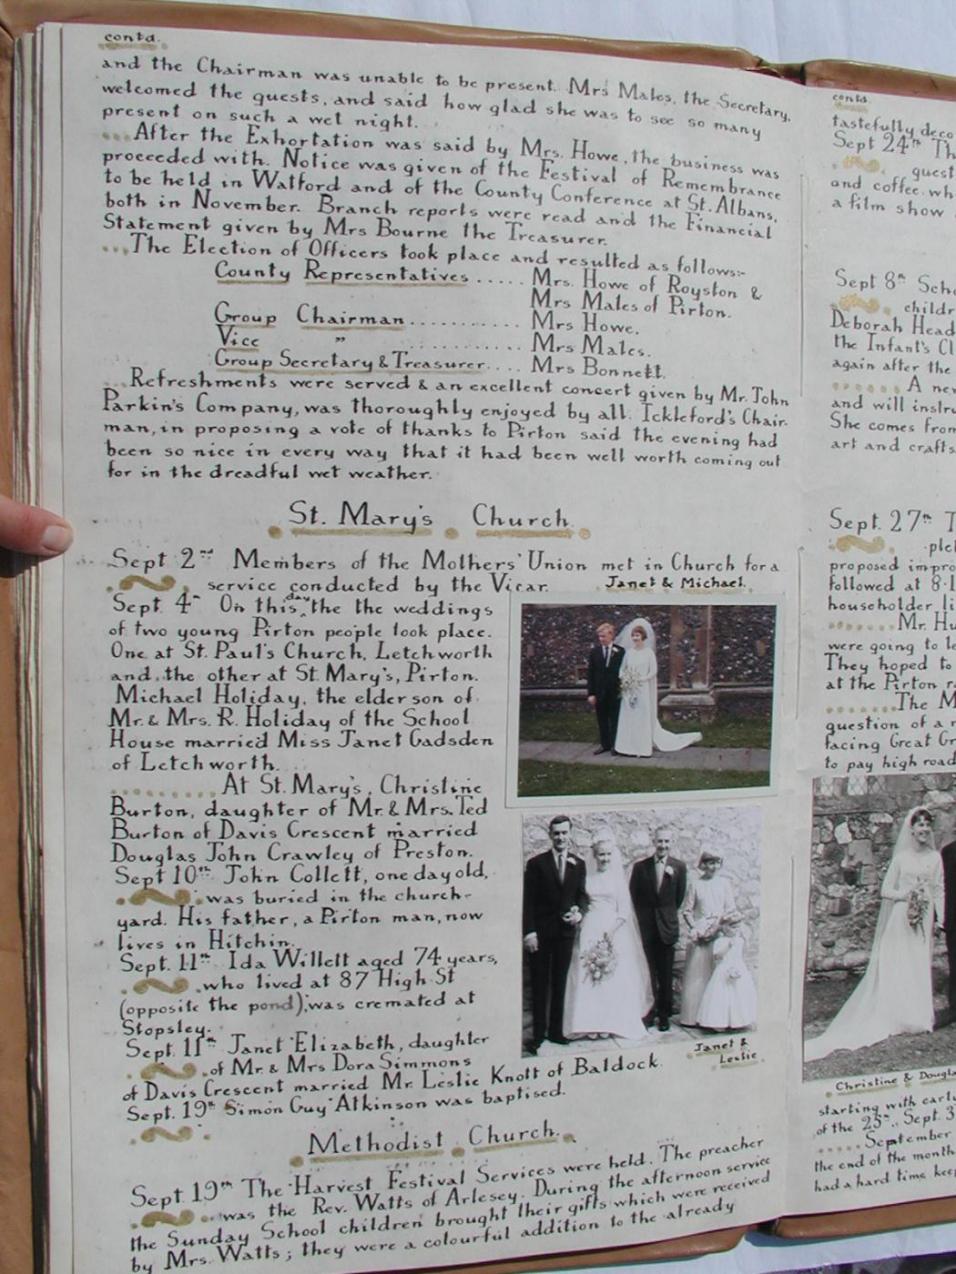 contd.
and the Chairman was unable to be present. Mrs Males, the Secretary,
welcomed the guests, and said how glad she was to see so many
present on such a wet night.
...After the Exhortation was said by Mrs. Howe, the business was
proceeded with. Notice was given of the Festival of Remembrance
to be held in Watford and of the County Conference at St. Albans,
both in November. Branch reports were read and the Financial
Statement given by Mrs Bourne the Treasurer.
...The Election of Officers took place and resulted as follows:-
County Representatives ..... Mrs. Howe of Royston &
Mrs Males of Pirton.
Group Chairman .......... Mrs Howe.
Vice " .......... Mrs Males.
Group Secretary & Treasurer.... Mrs Bonnett.
...Refreshments were served & an excellent concert given by Mr. John
Parkin's Company, was thoroughly enjoyed by all. Ickleford's Chair-
man, in proposing a vote of thanks to Pirton said the evening had
been so nice in every way that it had been well worth coming out
for in the dreadful wet weather.
St. Mary's Church.
Sept 2nd Members of the Mothers' Union met in Church for a
service conducted by the Vicar.
Janet & Michael.
Sept. 4th On this day the the weddings
of two young Pirton people took place.
One at St. Paul's Church, Letchworth
and the other at St. Mary's, Pirton.
Michael Holiday, the elder son of
Mr. & Mrs. R. Holiday of the School
House married Miss Janet Gadsden
of Letchworth.
........At St. Mary's, Christine
Burton, daughter of Mr. & Mrs. Ted
Burton of Davis Crescent married
Douglas John Crawley of Preston.
Sept 10th John Collett, one day old,
was buried in the church-
yard. His father, a Pirton man, now
lives in Hitchin.
Sept. 11th Ida Willett aged 74 years,
who lived at 87 High St
(opposite the pond), was cremated at
Stopsley.
Sept. 11th Janet Elizabeth, daughter
of Mr. & Mrs Dora Simmons
of Davis Crescent married Mr. Leslie Knott of Baldock.
Janet &
Leslie.
Sept. 19th Simon Guy Atkinson was baptised.
Methodist Church.
Sept. 19th The Harvest Festival Services were held. The preacher
was the Rev. Watts of Arlesey. During the afternoon service
the Sunday School children brought their gifts which were received
by Mrs. Watts; they were a colourful addition to the already
contd.
tastefully deco
Sept 24th Th
guest
and coffee wh
a film show
Sept 8th Scho
childr
Deborah Head
the Infant's Cl
again after the
.......A new
and will instru
She comes from
art and crafts
Sept. 27th T
plet
proposed impro
followed at 8.1
householder li
.......Mr. Hu
were going to le
They hoped to
at the Pirton r
.......The M
question of a n
facing Great Gr
to pay high road
Christine & Dougla
starting with early
of the 25th. Sept. 3
.....September
the end of the month
had a hard time keep